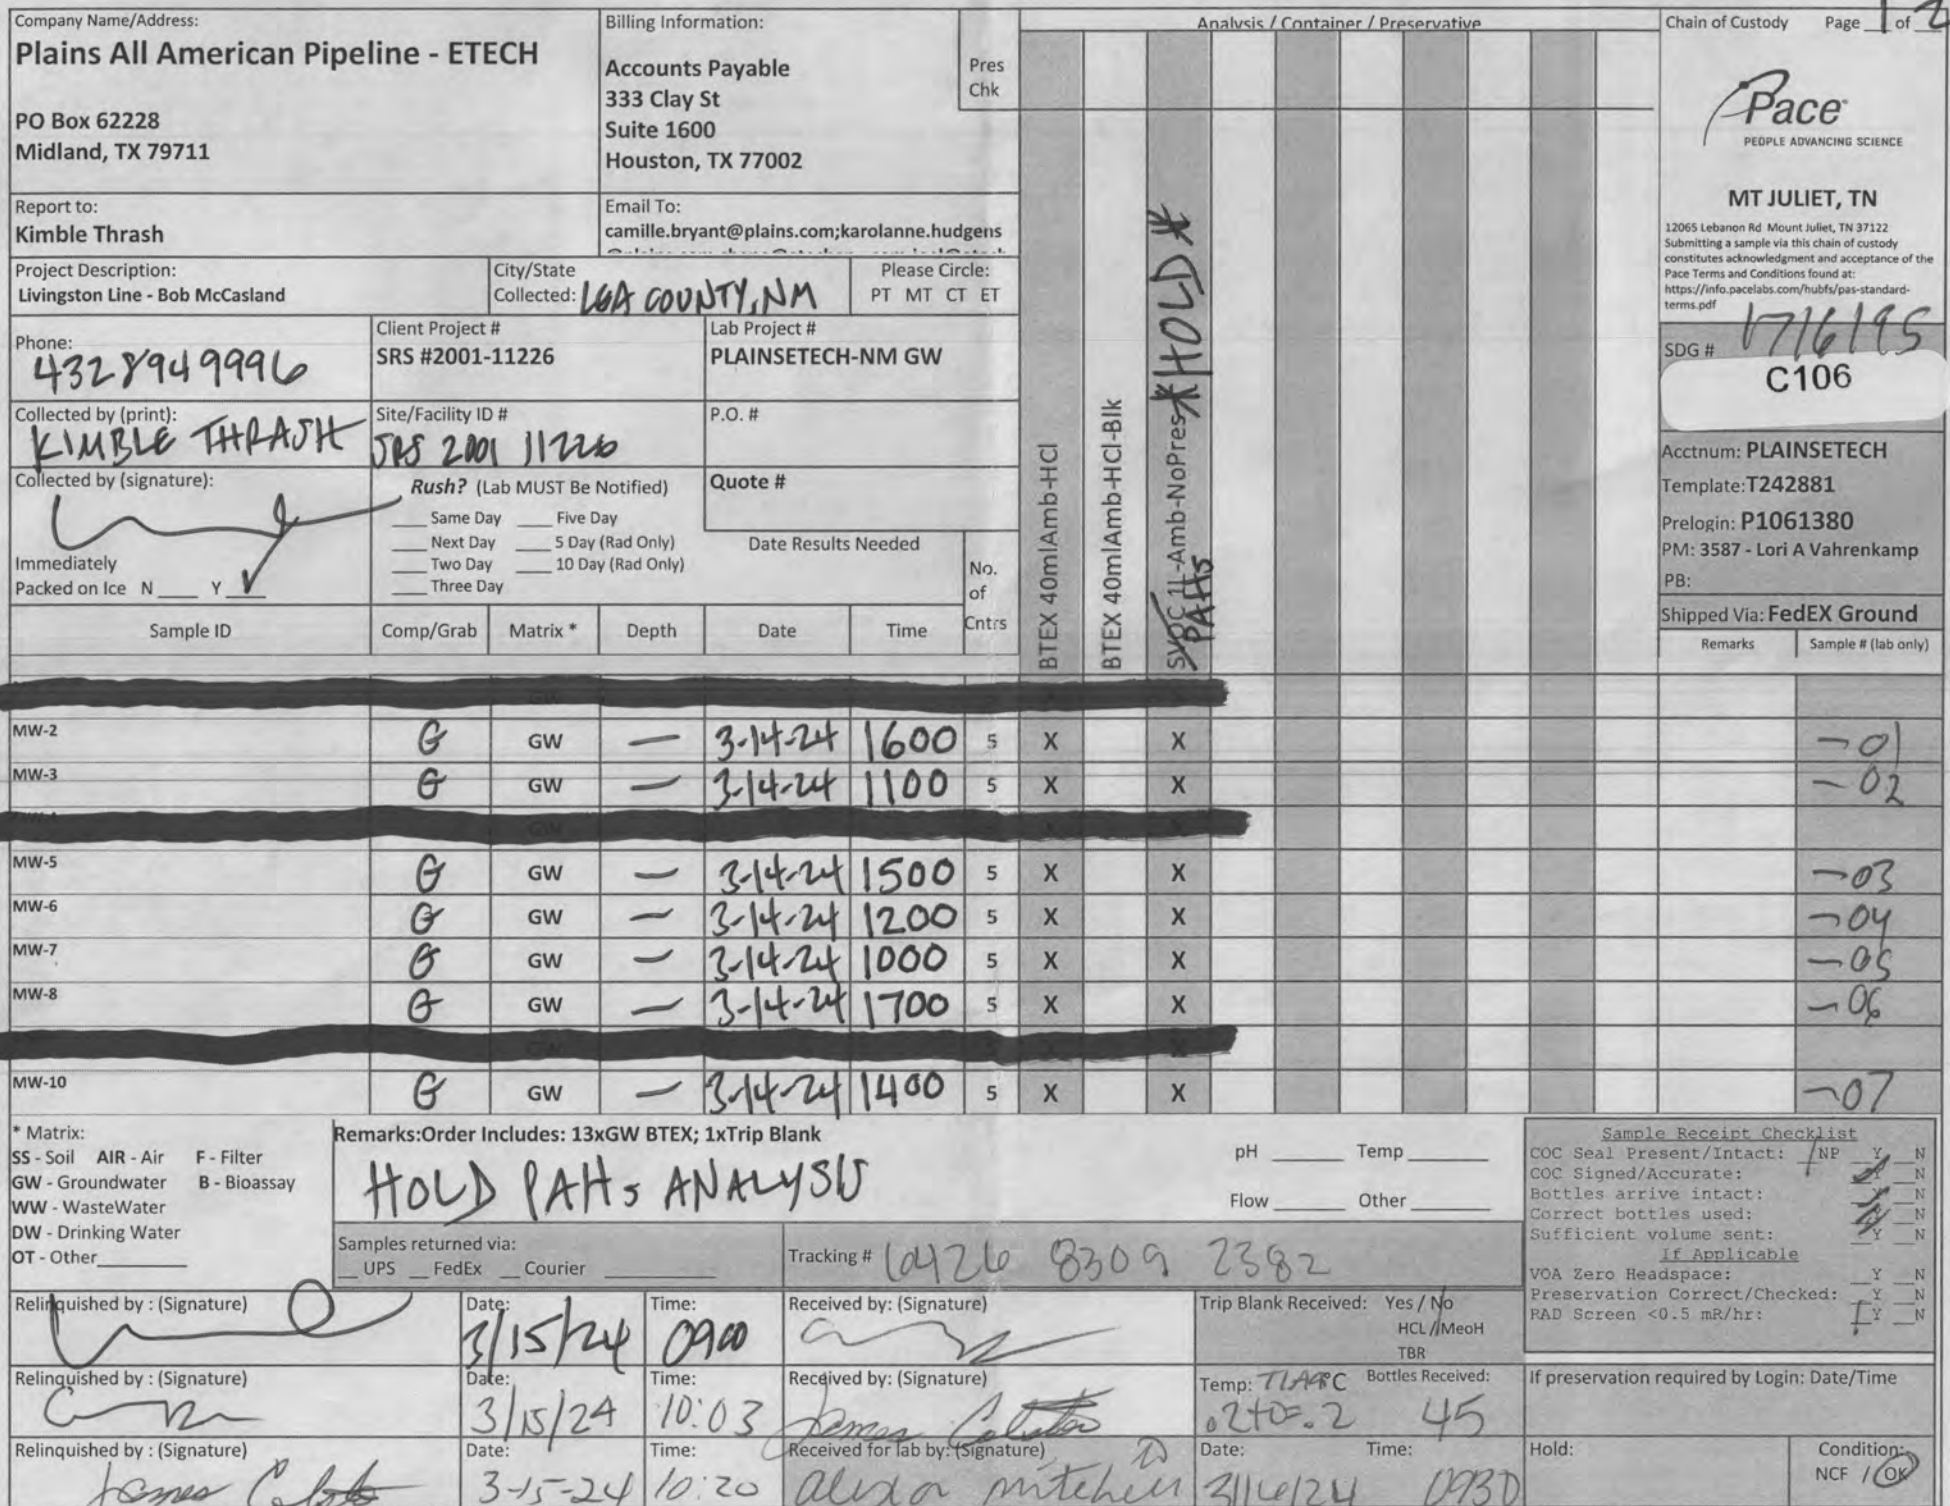 Company Name/Address:
Plains All American Pipeline - ETECH
PO Box 62228
Midland, TX 79711
Billing Information:
Accounts Payable
333 Clay St
Suite 1600
Houston, TX 77002
Pres
Chk
Analysis / Container / Preservative
Chain of Custody Page 1 of 2
Pace
PEOPLE ADVANCING SCIENCE
MT JULIET, TN
12065 Lebanon Rd Mount Juliet, TN 37122
Submitting a sample via this chain of custody
constitutes acknowledgment and acceptance of the
Pace Terms and Conditions found at:
https://info.pacelabs.com/hubfs/pas-standard-
terms.pdf
Report to:
Kimble Thrash
Email To:
camille.bryant@plains.com;karolanne.hudgens
Project Description:
Livingston Line - Bob McCasland
City/State
Collected: LEA COUNTY, NM
Please Circle:
PT MT CT ET
Phone:
4328949996
Client Project #
SRS #2001-11226
Lab Project #
PLAINSETECH-NM GW
SDG # 1716195
C106
Collected by (print):
KIMBLE THRASH
Site/Facility ID #
SRS 2001 11226
P.O. #
Collected by (signature):
Rush? (Lab MUST Be Notified)
Same Day Five Day
Next Day 5 Day (Rad Only)
Two Day 10 Day (Rad Only)
Three Day
Quote #
Date Results Needed
No.
of
Cntrs
Immediately
Packed on Ice N Y ✓
BTEX 40mlAmb-HCl
BTEX 40mlAmb-HCl-Blk
SVOC 1L-Amb-NoPres *HOLD*
PAHs
Acctnum: PLAINSETECH
Template: T242881
Prelogin: P1061380
PM: 3587 - Lori A Vahrenkamp
PB:
Shipped Via: FedEX Ground
Sample ID Comp/Grab Matrix * Depth Date Time Remarks Sample # (lab only)
MW-2 G GW — 3-14-24 1600 5 X X -01
MW-3 G GW — 3-14-24 1100 5 X X -02
MW-5 G GW — 3-14-24 1500 5 X X -03
MW-6 G GW — 3-14-24 1200 5 X X -04
MW-7 G GW — 3-14-24 1000 5 X X -05
MW-8 G GW — 3-14-24 1700 5 X X -06
MW-10 G GW — 3-14-24 1400 5 X X -07
* Matrix:
SS - Soil AIR - Air F - Filter
GW - Groundwater B - Bioassay
WW - WasteWater
DW - Drinking Water
OT - Other
Remarks:Order Includes: 13xGW BTEX; 1xTrip Blank
HOLD PAHs ANALYSIS
pH Temp
Flow Other
Sample Receipt Checklist
COC Seal Present/Intact: NP Y N
COC Signed/Accurate: Y N
Bottles arrive intact: Y N
Correct bottles used: Y N
Sufficient volume sent: Y N
If Applicable
VOA Zero Headspace: Y N
Preservation Correct/Checked: Y N
RAD Screen <0.5 mR/hr: Y N
Samples returned via:
UPS FedEx Courier
Tracking # 6426 8309 2382
Relinquished by : (Signature)
Date: 3/15/24
Time: 0900
Received by: (Signature)
Trip Blank Received: Yes / No
HCL / MeoH
TBR
Relinquished by : (Signature)
Date: 3/15/24
Time: 10:03
Received by: (Signature)
James
Temp: °C Bottles Received:
.2+0=.2 45
If preservation required by Login: Date/Time
Relinquished by : (Signature)
James
Date: 3-15-24
Time: 10:20
Received for lab by: (Signature)
mitchell
Date: 3/16/24
Time: 0930
Hold:
Condition:
NCF / OK